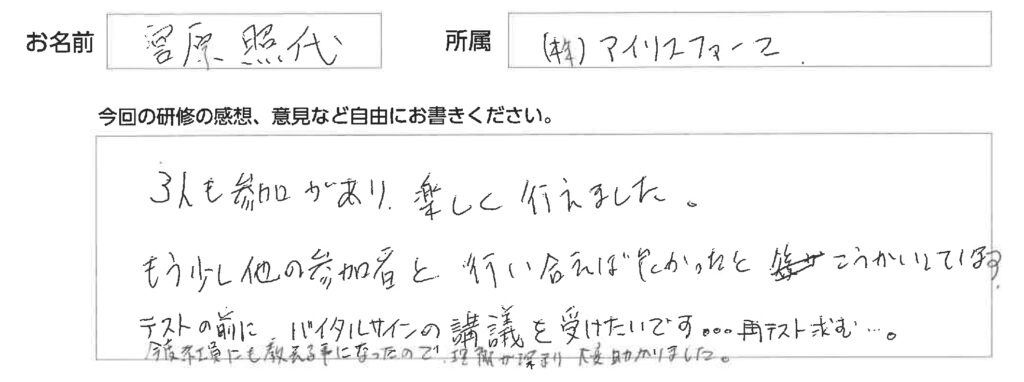 お名前 宮原照代 所属 (株)アイリスファーマ
今回の研修の感想、意見など自由にお書きください。
3人も参加があり、楽しく行えました。
もう少し他の参加者と行い合えば良かったと こうかいしています。
テストの前に、バイタルサインの講議を受けたいです...再テスト求む...。
今度社員にも教える事になったので、理解が深まり大変助かりました。